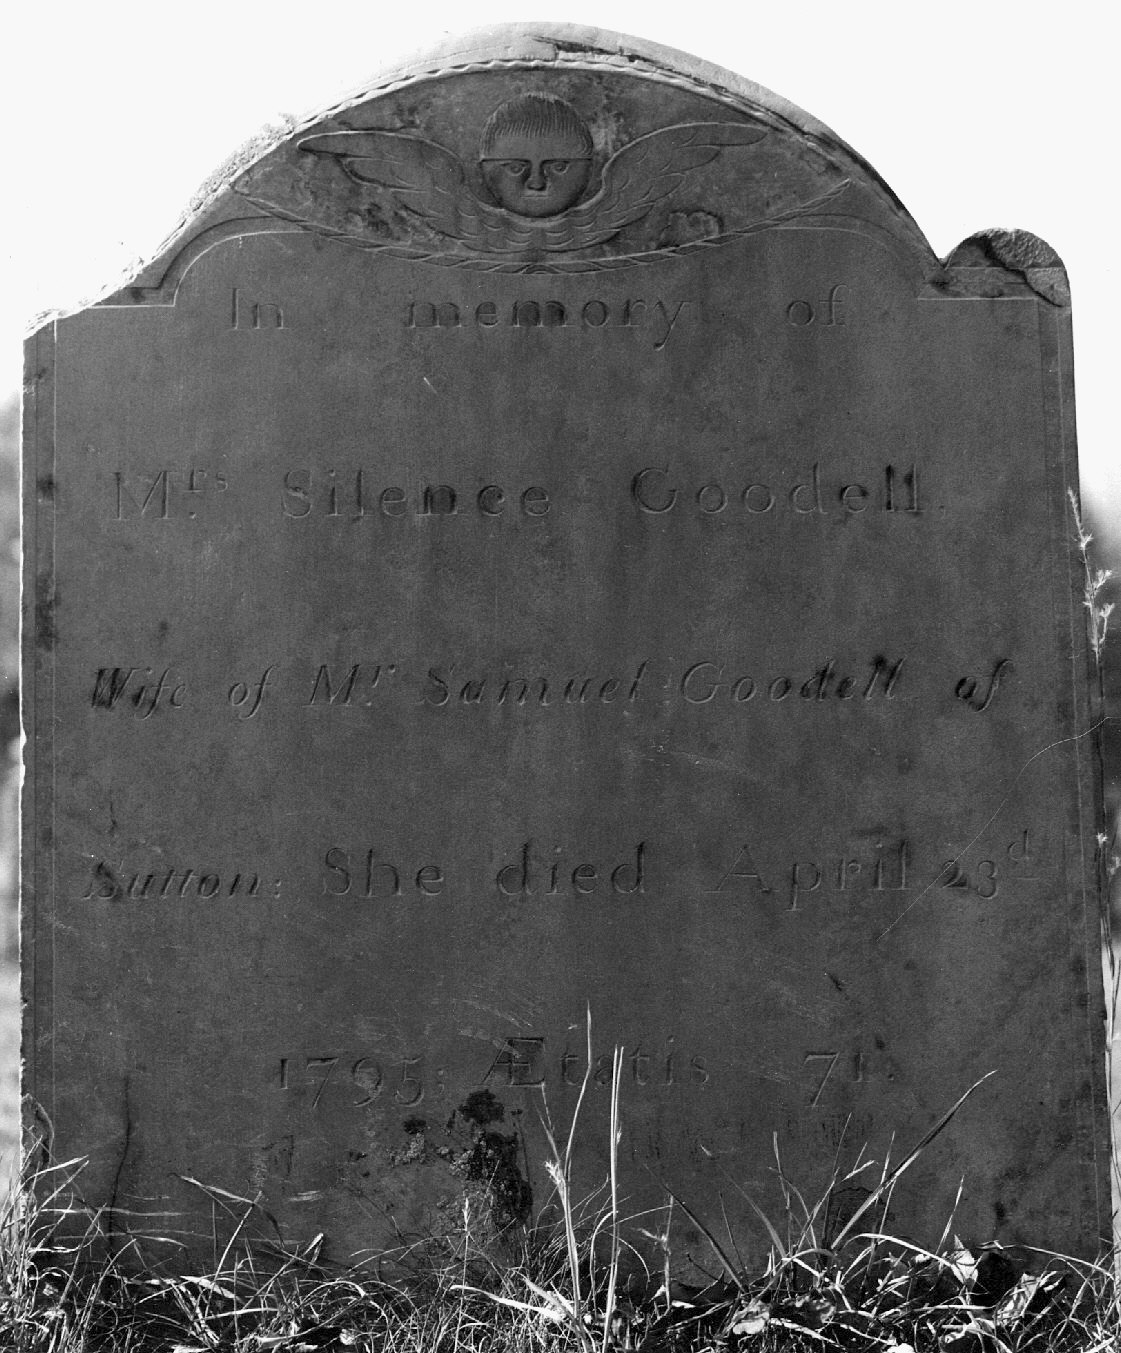 In memory of
Mrs Silence Goodell.
Wife of Mr. Samuel Goodell of
Sutton; She died April 23d
1795; Ætatis 71.